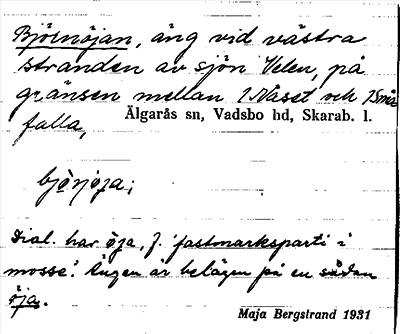 Björnöjan, äng vid västra
stranden av sjön Velen, på
gränsen mellan 1 Näset och 1 Små
falla,
Älgarås sn, Vadsbo hd, Skarab. l.
bjö̀ɳöja;
Dial. har öja, f. 'fastmarksparti i
mosse'. Ängen är belägen på en sådan
öja.
Maja Bergstrand 1931